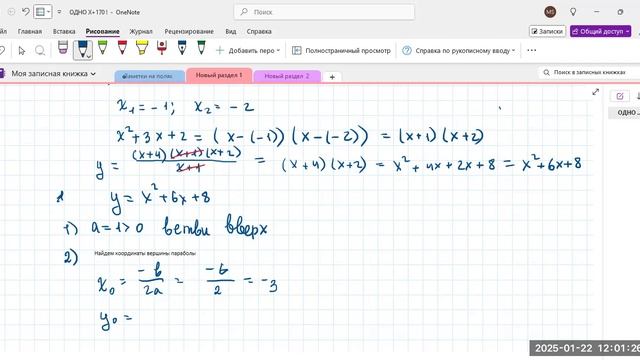 ОДНО X+1701 - OneNote
Поиск
MS
Файл Главная Вставка Рисование Журнал Рецензирование Вид Справка
Записки
Общий доступ
Добавить перо
Полноэкранный просмотр
Справка по рукописному вводу
Моя записная книжка
Заметки на полях
Новый раздел 1
Новый раздел 2
+
Поиск в записных книжках
ОДНО
x₁ = -1; x₂ = -2
x² + 3x + 2 = (x-(-1)) (x-(-2)) = (x+1)(x+2)
y = (x+4)(x+1)(x+2) / x+1 = (x+4)(x+2) = x² + 4x + 2x + 8 = x² + 6x + 8
y = x² + 6x + 8
1) a = 1 > 0 ветви вверх
2) Найдем координаты вершины параболы
x₀ = -b / 2a = -6 / 2 = -3
y₀ =
2025-01-22 12:01:26